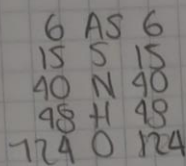 6 AS 6
15 S 15
40 N 40
98 H 48
124 O 124